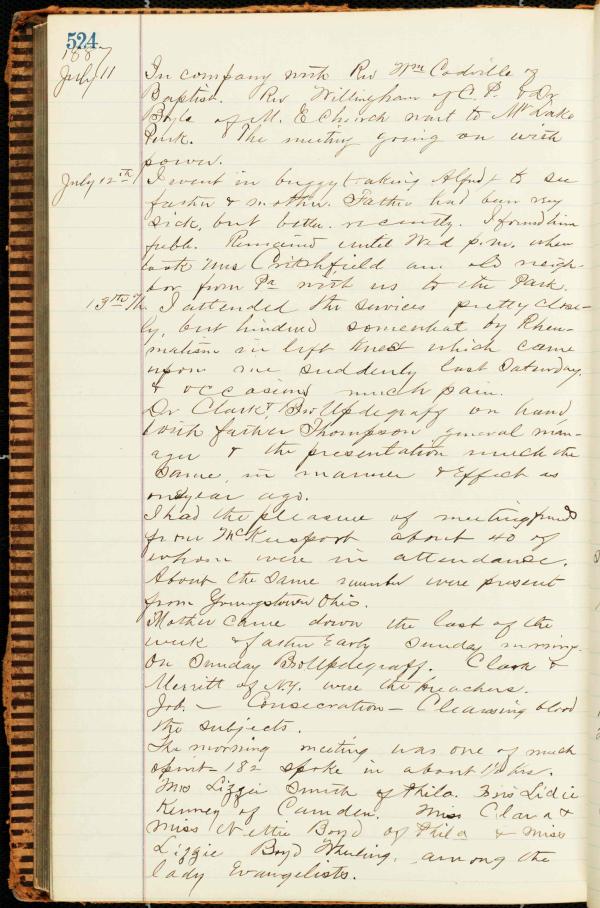 524
1887
July 11 In company with Rev Wm Codville of
Baptist. Rev Willingham of C. P. & Dr
Boyle of M. E Church went to Mt Lake
Park. The meeting going on with
power.
July 12th I went in buggy taking Alfred to see
father & mother. Father had been very
sick, but better recently. I found him
feeble. Remained until Wed p.m. when
took Mrs Critchfield an old neigh-
bor from Pa with us to the Park.
13th I attended the services pretty close-
ly, but hindered somewhat by Rheu-
matism in left knee which came
upon me suddenly last Saturday
& occasions much pain.
Dr Clark & Bro Updegraff on hand
with father Thompson general man-
ager & the presentation much the
same, in manner & effect as
one year ago.
I had the pleasure of meeting friends
from McKeesport about 40 of
whom were in attendance.
About the same number were present
from Youngstown Ohio.
Mother came down the last of the
week & father Early Sunday morning.
On Sunday Bro Updegraff. Clark &
Merritt of N.Y. were the preachers.
Consecration - Cleansing blood
the subjects.
The morning meeting was one of much
spirit - 182 spoke in about 1½ hrs.
Mrs Lizzie Smith of Phila. Lidie
Kenney of Camden. Miss Clara &
Miss Nettie Boyd of Phila & Miss
Lizzie Boyd Wheeling, among the
lady Evangelists.